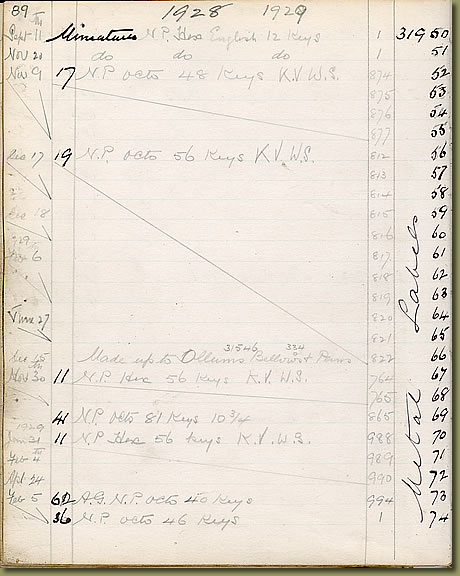 89 1928 1929
Sept 11th Miniatures N.P. Hex English 12 Keys 1 31950
Nov 20 do do do 1 51
Nov 9 17 N.P. Octo 48 Keys K.V.W.S. 874 52
875 53
876 54
877 55
Dec 17 19 N.P. Octo 56 Keys K.V.W.S. 812 56
813 57
814 58
Dec 18 815 59
1929 816 60
Feb 6 817 61
818 62
819 63
820 64
June 27 821 65
31546 334
Dec 15 Made up to 822 66
Nov 30th 11 N.P. Hex 56 Keys K.V.W.S. 764 67
765 68
1929 41 N.P. Octo 81 Keys 10 3/4 865 69
Jan 21 11 N.P. Hex 56 Keys K.V.W.S. 988 70
Feb 4th 989 71
Apl 24 990 72
Feb 5 62 A.G. N.P. Octo 40 Keys 994 73
36 N.P. Octo 46 Keys 1 74
Metal Labels